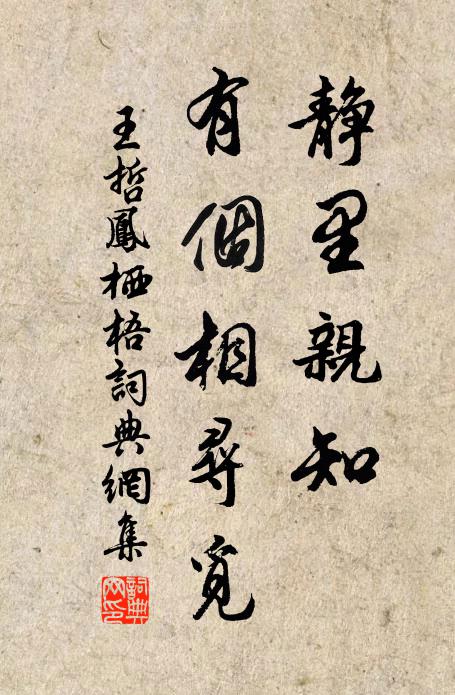 静里親知
有個相尋覓
王哲鳳栖梧詞典網集
詞典网印